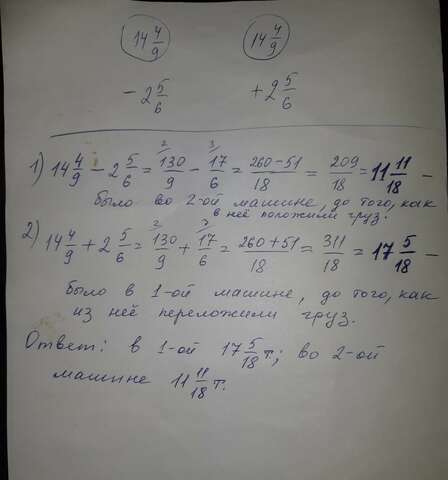 14 4/9 14 4/9
- 2 5/6 + 2 5/6
1) 14 4/9 - 2 5/6 = 130/9 - 17/6 = 260-51/18 = 209/18 = 11 11/18 -
было во 2-ой машине, до того, как
в неё положили груз.
2) 14 4/9 + 2 5/6 = 130/9 + 17/6 = 260+51/18 = 311/18 = 17 5/18 -
было в 1-ой машине, до того, как
из неё переложили груз.
Ответ: в 1-ой 17 5/18 т.; во 2-ой
машине 11 11/18 т.